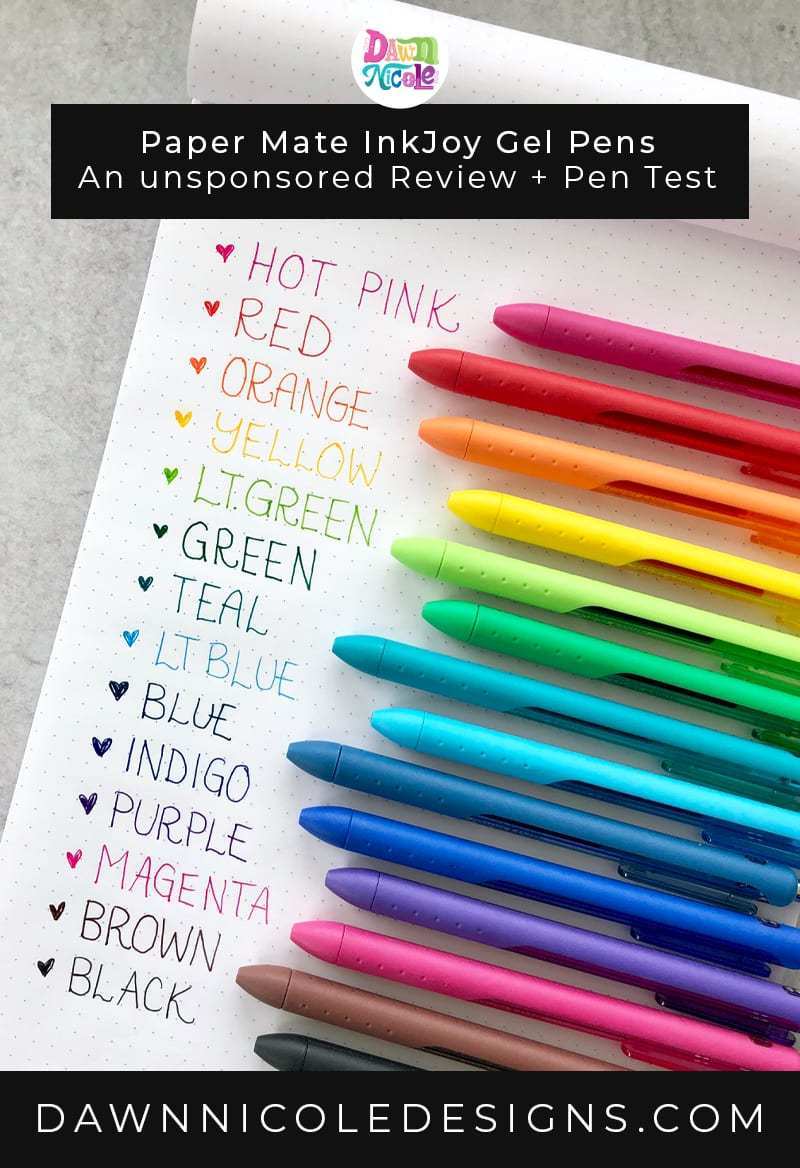 Dawn
Nicole
Paper Mate InkJoy Gel Pens
An unsponsored Review + Pen Test
HOT PINK
RED
ORANGE
YELLOW
LT.GREEN
GREEN
TEAL
LT BLUE
BLUE
INDIGO
PURPLE
MAGENTA
BROWN
BLACK
DAWNNICOLEDESIGNS.COM